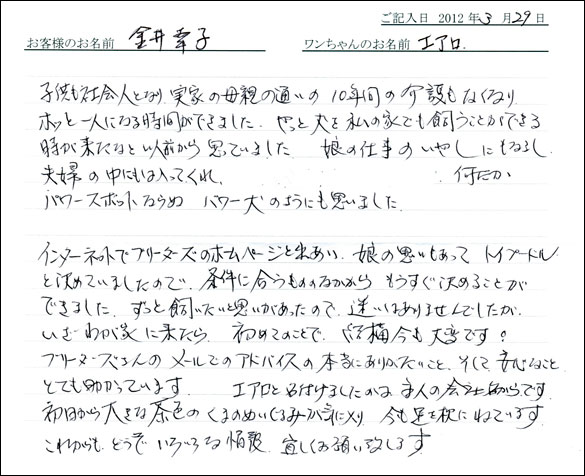 ご記入日 2012年3月29日
お客様のお名前 金井幸子 ワンちゃんのお名前 エアロ.
子供も社会人となり、実家の母親の通いの10年間の介護もなくなり
ホッと一人になる時間ができました. やっと犬を私の家でも飼うことができる
時が来たなと以前から思っていました 娘の仕事のいやしにもなるし
夫婦の中にも入ってくれ、 何だか
パワースポットならぬ パワー犬のようにも思いました.
インターネットでブリーダーズのホームページと出あい、娘の思いもあって トイプードル
と決めていましたので、条件に合うもののなかから もうすぐ決めることが
できました. ずっと飼いたいと思いがあったので、迷いはありませんでしたが.
いざわが家に来たら、初めてのことで、 今も大変です。
ブリーダーズさんのメールでのアドバイスの本当にありがたいこと、そして安心なこと
とても助かっています エアロと名付けましたのは主人の会社名からです
初日から大きな茶色のくまのぬいぐるみが気に入り 今も足を枕にねています
これからも、どうぞ いろいろな情報 宜しくお願い致します